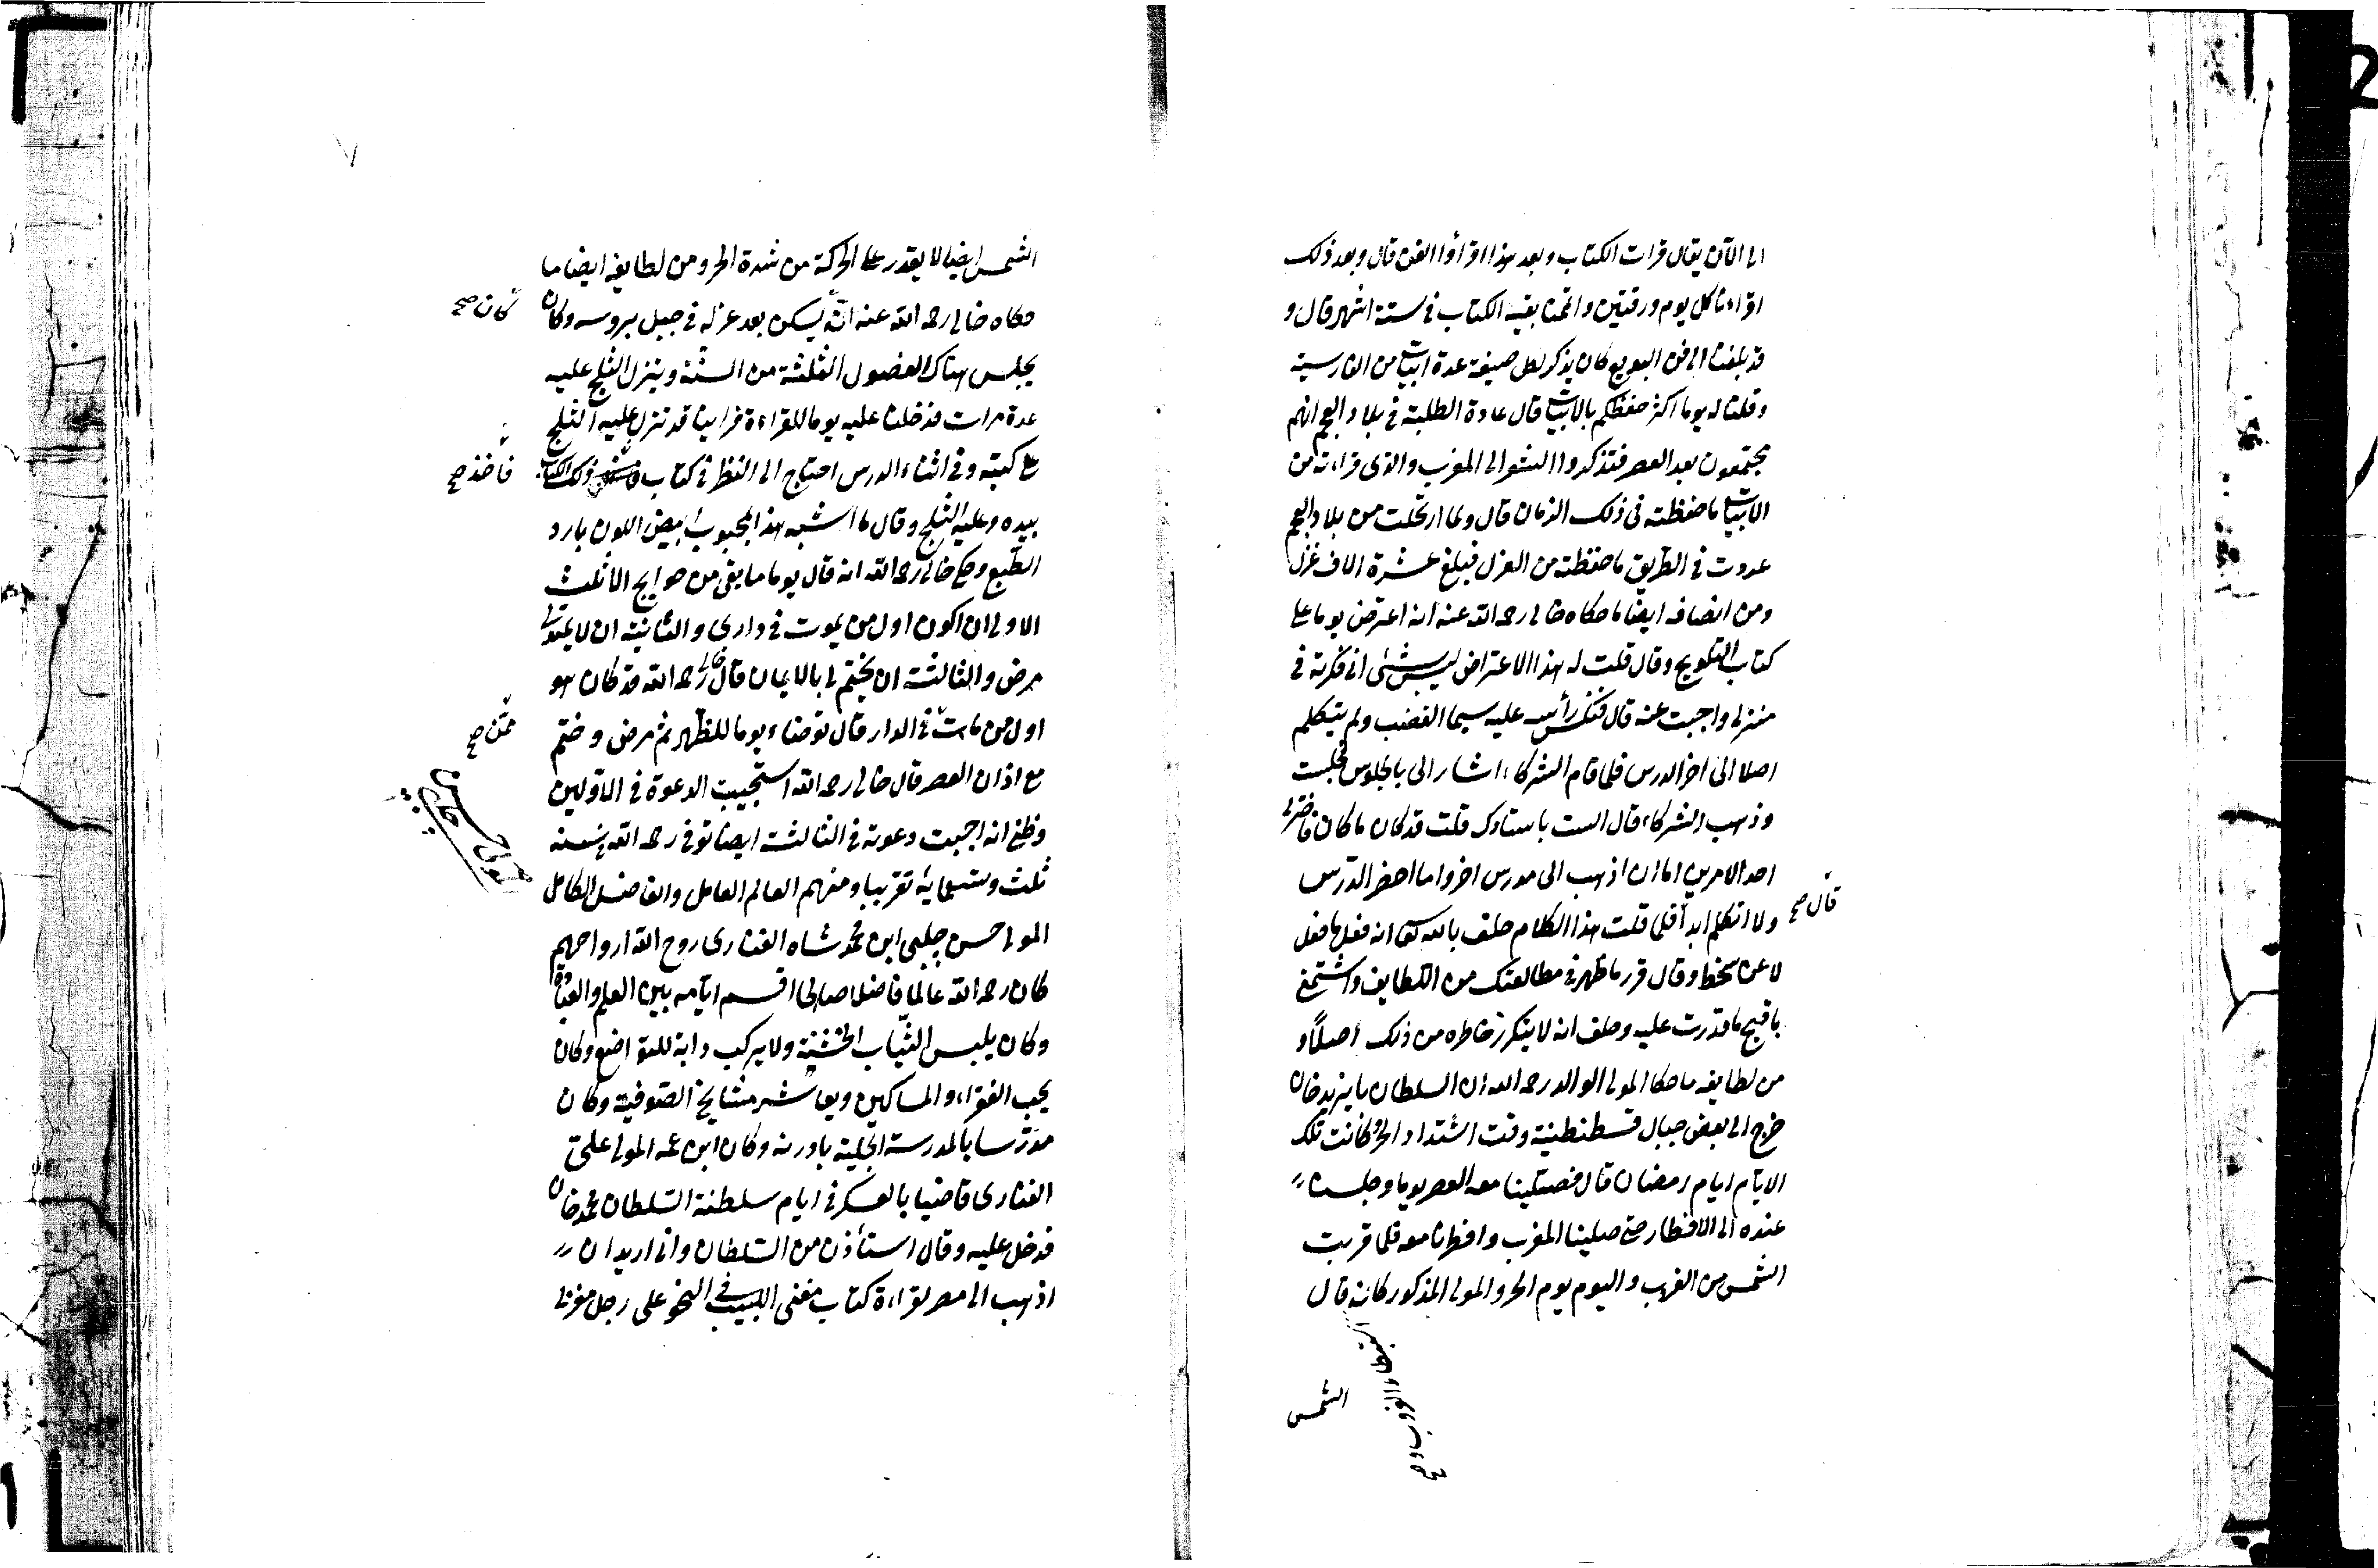 الى الآن يقال قرات الكتاب وبعد هذا اقرأوا الفن قال وبعد ذلك
اقراءنا كل يوم ورقتين واتمنا بقية الكتاب في ستة اشهر قال و
قد بلغنا الى فن البديع كان يذكر لكل صنيعة عدة ابيات من الفارسية
وقلنا له يوما اكثر حفظكم بالابيات قال عادة الطلبة في بلاد العجم انهم
يجتمعون بعد العصر فتذكروا الشعر الى المغرب والذى قراءته من
الابيات ما حفظته فى ذلك الزمان قال ولما ارتحلت من بلاد العجم
عددت في الطريق ما حفظته من الغزل فبلغ عشرة الاف غزل
ومن انصافه ايضا ما حكاه خالى رحمه الله عنه انه اعترض يوما على
كتاب التلويح وقال قلت له هذا الاعتراض ليس بشئ انى فكرته في
منزلى واجبت عنه قال فنكس رأسه عليه سيما الغضب ولم يتكلم
اصلا الى اخر الدرس فلما قام الشركاء اشار الى بالجلوس فجلست
وذهب الشركاء قال الست باستادك قلت قد كان ما كان فاختر لى
احد الامرين اما ان اذهب الى مدرس اخر واما احضر الدرس
ولا اتكلم ابدا فلما قلت هذا الكلام حلف بالله تعالى انه فعل ما فعل
قال صح
لا عن سخط وقال قرر ما ظهر في مطالعتك من اللطايف واشتمنى
باقبح ما قدرت عليه وحلف انه لا يتكدر خاطره من ذلك اصلا و
من لطايفه ما حكاه المولى الوالد رحمه الله ان السلطان بايزيد خان
خرج الى بعض جبال قسطنطينية وقت اشتداد الحر وكانت تلك
الايام ايام رمضان قال فصلينا معه العصر يوما وجلسنا
عنده الى الافطار حتى صلينا المغرب وافطرنا معه فلما قربت
الشمس من الغروب واليوم يوم الحر والمولى المذكور كانه قال
الشمس
الشمس ايضا لا يقدر على الحركة من شدة الحر ومن لطايفه ايضا ما
حكاه خالى رحمه الله عنه انه يسكن بعد عزله في جبل بروسه وكان
كان صح
يجلس هناك الفصول الثلثة من السنة وينزل الثلج عليه
عدة مرات فدخلنا عليه يوما للقراءة فراينا قد نزل عليه الثلج
على كتبه وفي اثناء الدرس احتاج الى النظر في كتاب ذلك الكتاب
فاخذ صح
بيده وعليه الثلج وقال ما اشبه هذا المحبوب ابيض اللون بارد
الطبع وحكى خالى رحمه الله انه قال يوما ما بقى من حوايجى الا ثلث
الاولى ان اكون اول من يموت في دارى والثانية ان لا يمتد لى
مرض والثالثة ان يختم لى بالايمان قال خالى رحمه الله قد كان هو
اول من مات في الدار قال توضاء يوما للظهر ثم مرض وختم
ممن صح
مع اذان العصر قال خالى رحمه الله استجيبت الدعوة في الاولين
وظنى انه اجيبت دعوته في الثالثة ايضا توفى رحمه الله في سنة
ثلث وتسعمائة تقريبا ومنهم العالم العامل والفاضل الكامل
المولى حسن چلبى
المولى حسن چلبى ابن محمد شاه الفنارى روح الله ارواحهم
كان رحمه الله عالما فاضلا صالحا قسم ايامه بين العلم والعبادة
وكان يلبس الثياب الخشنة ولا يركب دابة للتواضع وكان
يحب الفقراء والمساكين ويعاشر مشايخ الصوفية وكان
مدرسا بالمدرسة الحلبية بادرنه وكان ابن عمه المولى على
الفنارى قاضيا بالعسكر في ايام سلطنة السلطان محمد خان
فدخل عليه وقال استأذن من السلطان وانى اريد ان
اذهب الى مصر لقراءة كتاب مغنى اللبيب في النحو على رجل مغربى